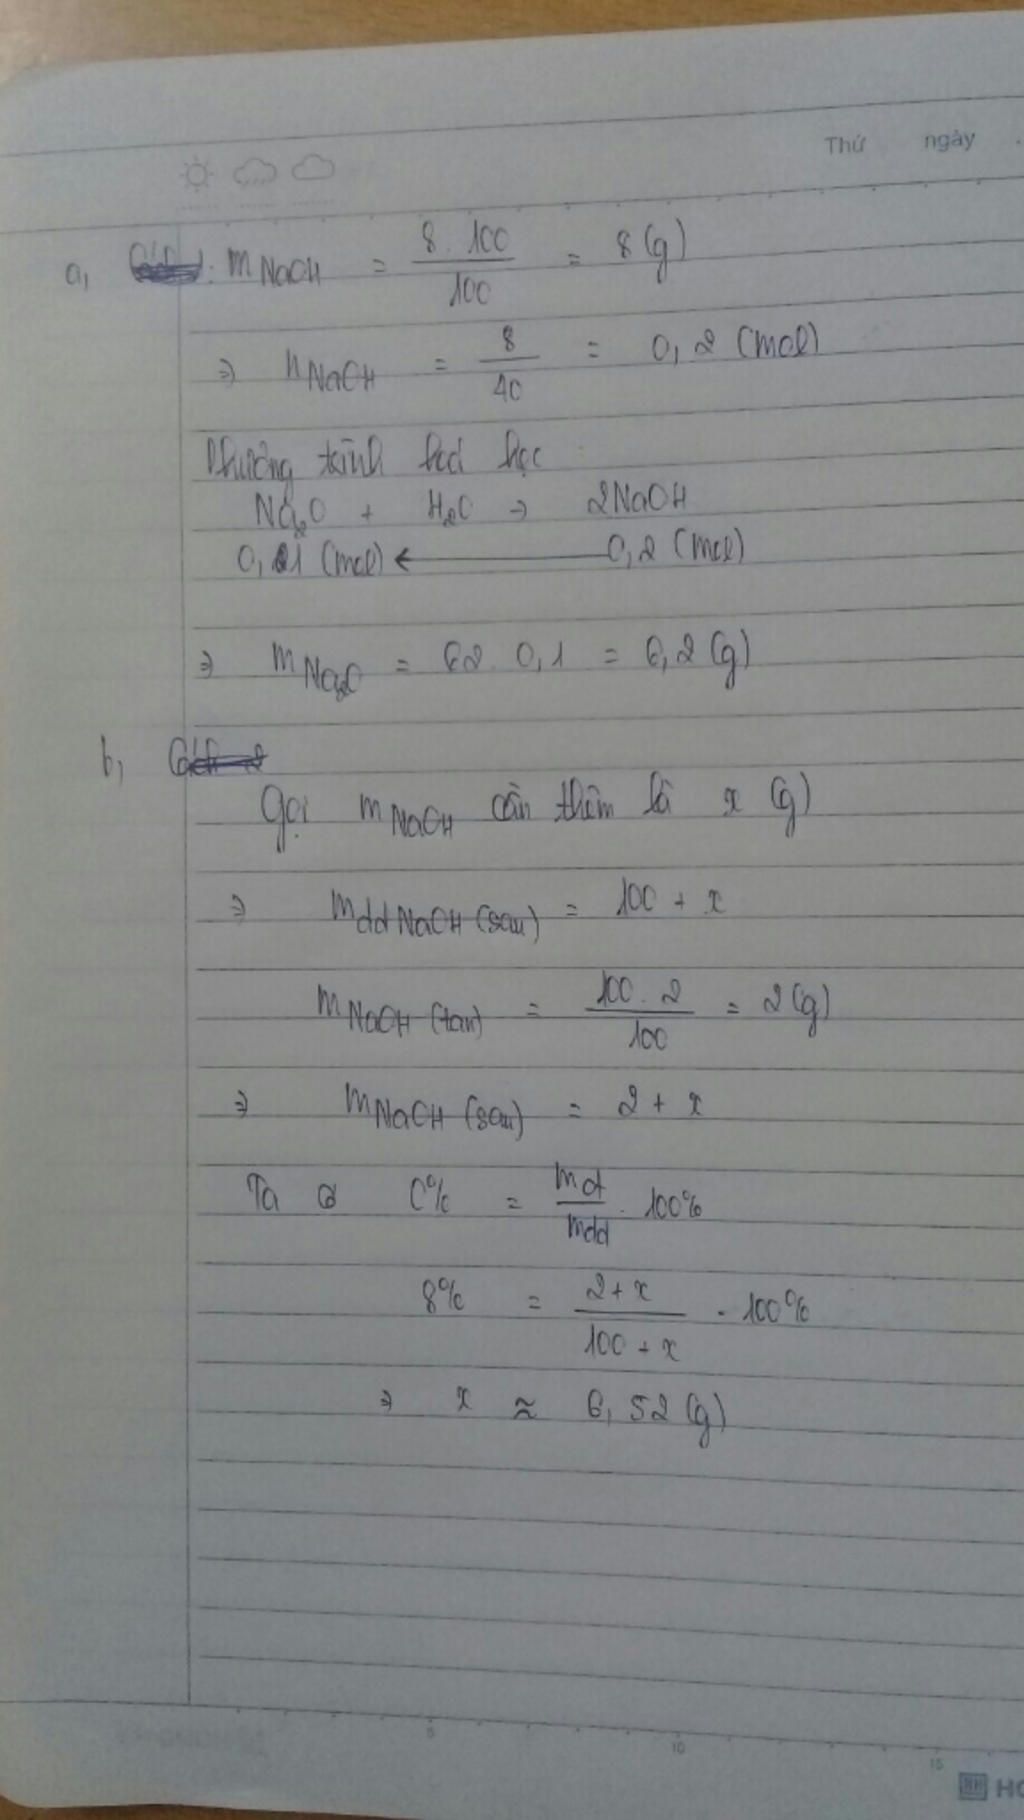 Thứ ngày
a, m NaOH = 8 . 100 / 100 = 8 (g)
⇒ n NaOH = 8 / 40 = 0,2 (mol)
Phương trình hoá học :
Na2O + H2O → 2NaOH
0,1 (mol) ← 0,2 (mol)
⇒ m Na2O = 62 . 0,1 = 6,2 (g)
b, Cách 2
Gọi m NaOH cần thêm là x (g)
⇒ m dd NaOH (sau) = 100 + x
m NaOH (tan) = 100 . 2 / 100 = 2 (g)
⇒ m NaOH (sau) = 2 + x
Ta có C% = mct / mdd . 100%
8% = 2 + x / 100 + x . 100%
⇒ x ≈ 6,52 (g)
5 10 15
HO